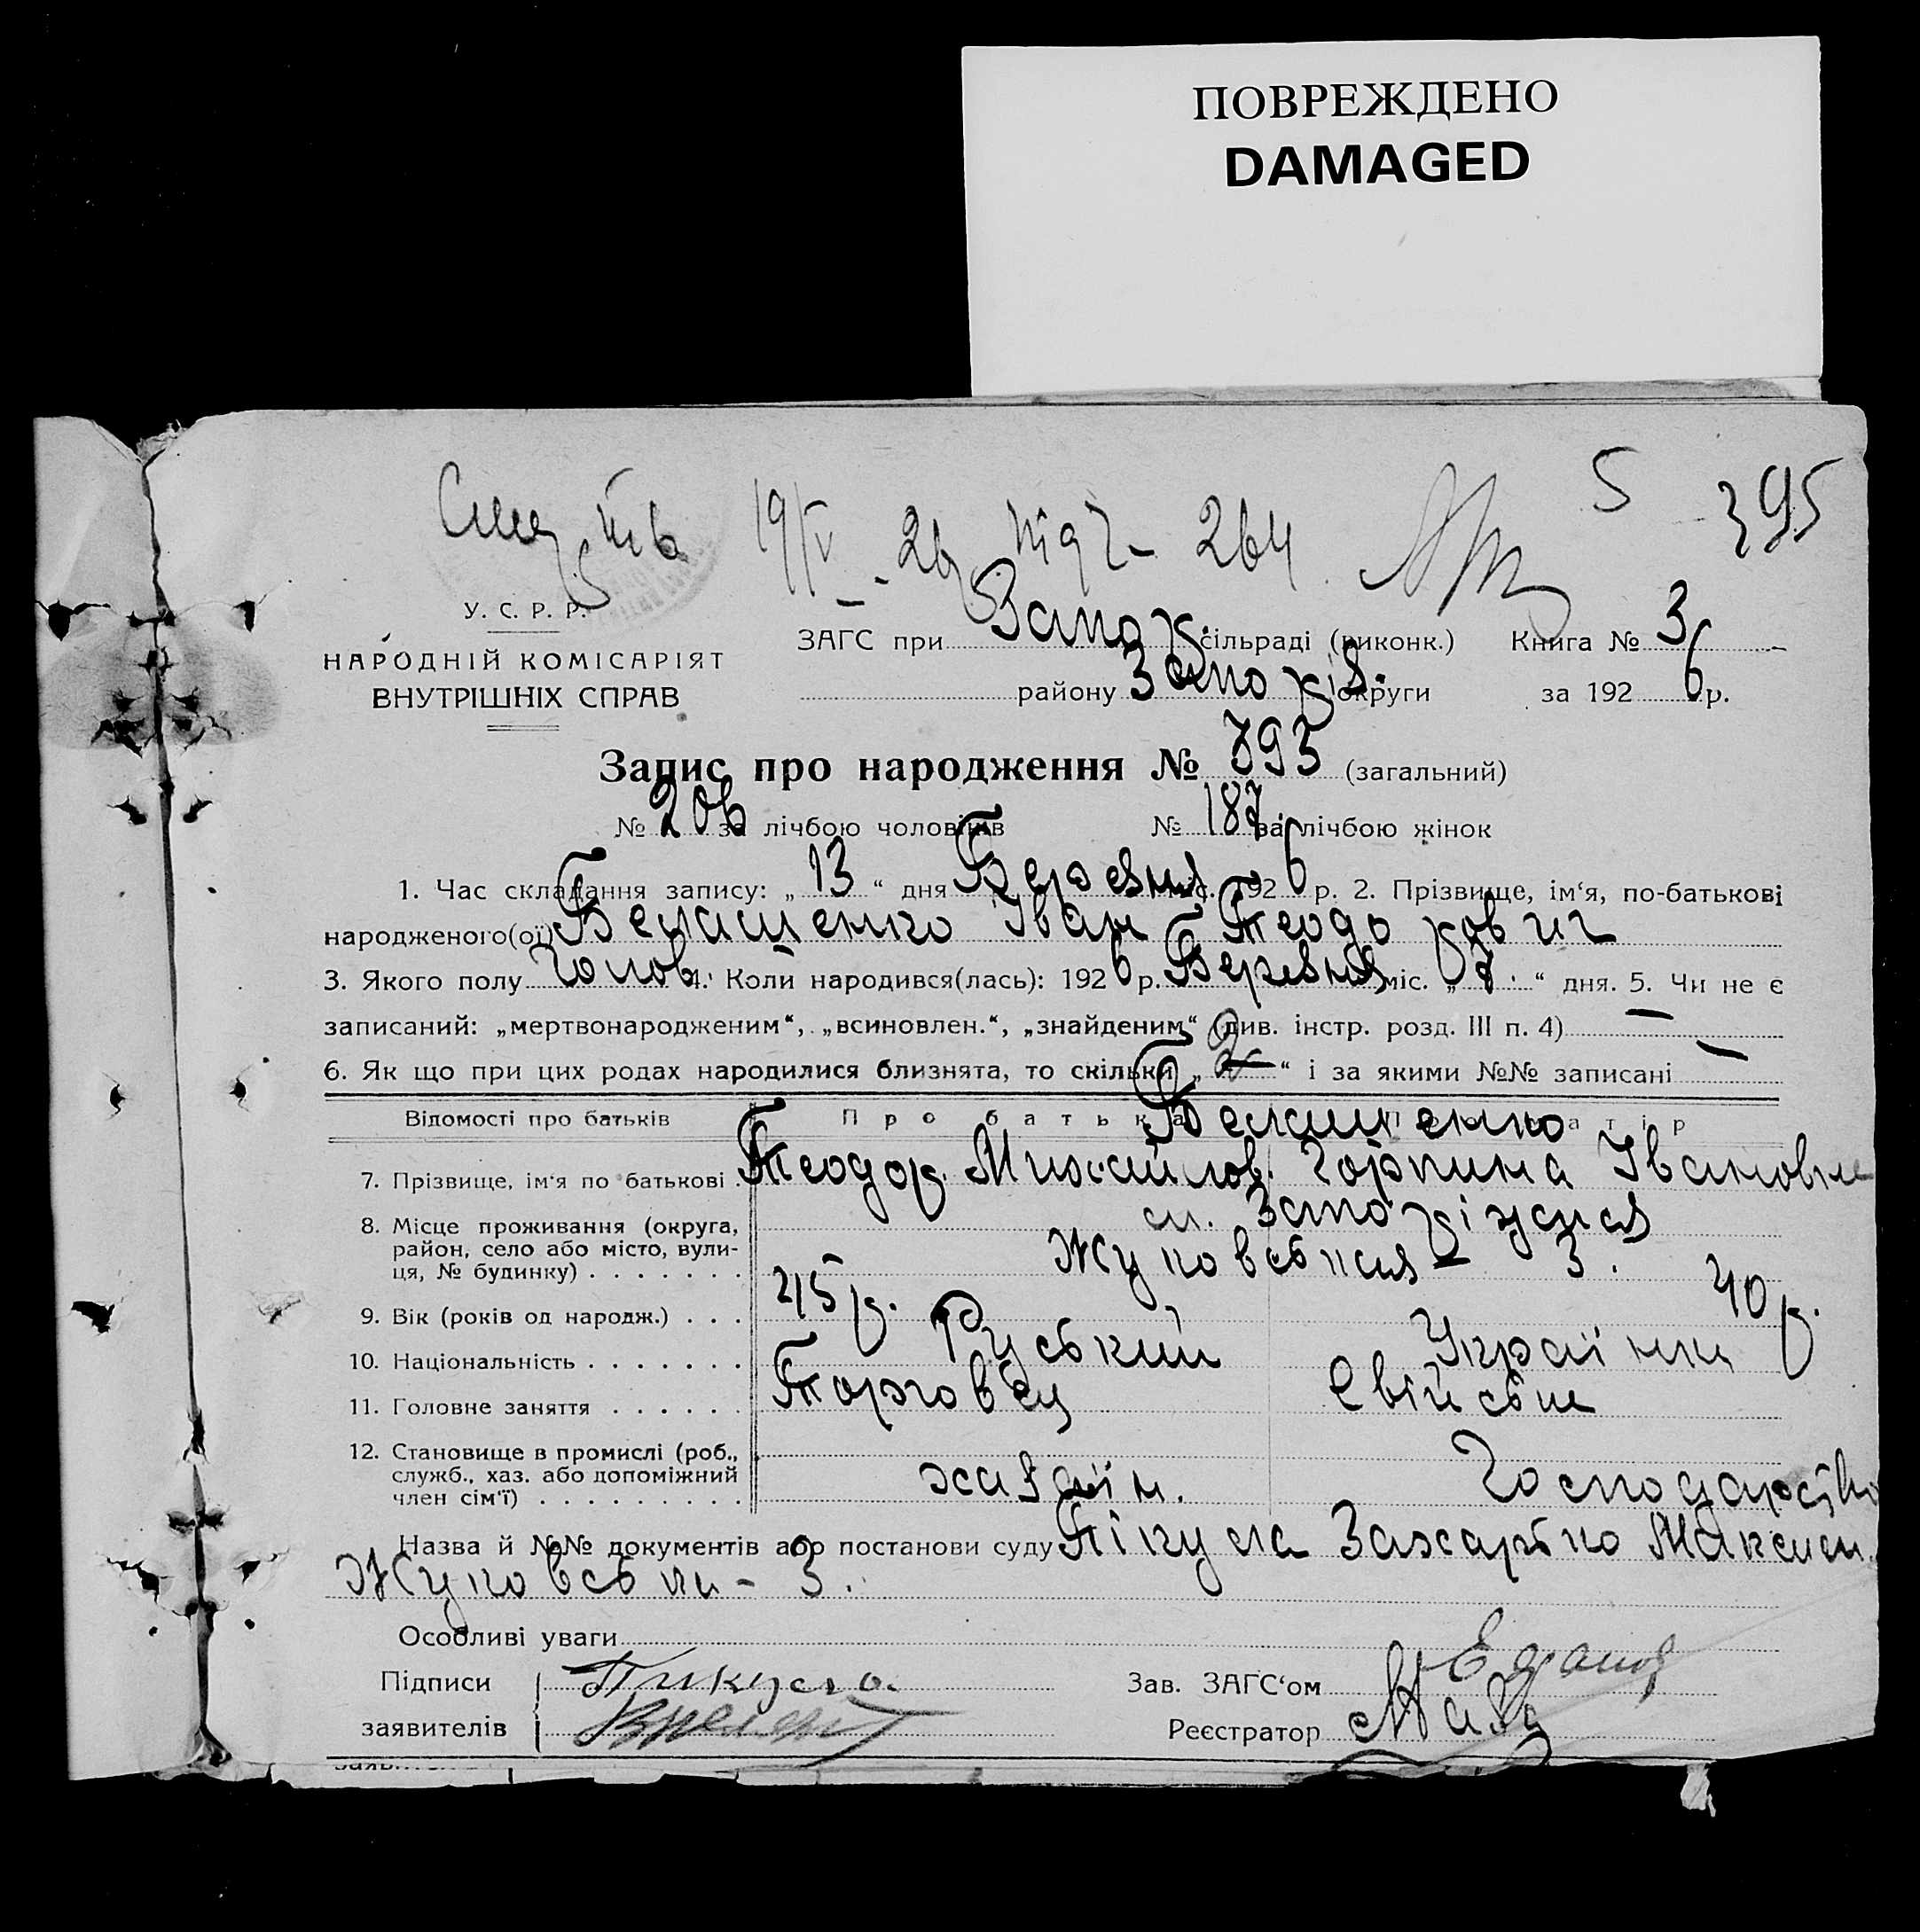 ПОВРЕЖДЕНО
DAMAGED
5 395
19/IV - 26 під ч- 264
У. С. Р. Р.
НАРОДНІЙ КОМІСАРІЯТ
ВНУТРІШНІХ СПРАВ
ЗАГС при Запор. сільраді (виконк.) Книга № 3
району Запоріз. округи за 1926 р.
Запис про народження № 393 (загальний)
№ 206 за лічбою чоловіків № 187 за лічбою жінок
1. Час складання запису: „13“ дня Березня міс. 1926 р. 2. Прізвище, ім‘я, по-батькові
народженого(ої) Белашенко Іван Теодорович
3. Якого полу Чолов. 4. Коли народився(лась): 1926 р. Березня міс. „7.“ дня. 5. Чи не є
записаний: „мертвонародженим“, „всиновлен.“, „знайденим“ (див. інстр. розд. III п. 4) —
6. Як що при цих родах народилися близнята, то скільки „ “ і за якими №№ записані —
Відомості про батьків Про батька Про матір
Белашенко
7. Прізвище, ім‘я по батькові Теодор Михайлов. Горпина Івановна
8. Місце проживання (округа, район, село або місто, вулиця, № будинку) м. Запоріжжя
Жуковська - 3.
9. Вік (років од народж.) 45 р. 40 р.
10. Національність Руський Українка
11. Головне заняття Торговец Свійське
12. Становище в промислі (роб., служб., хаз. або допоміжний член сім‘ї) хазяїн. Господарство
Назва й №№ документів або постанови суду Пікула Захарько Максим.
Жуковськи - 3.
Особливі уваги
Підписи Пикула.
заявителів
Зав. ЗАГС‘ом
Реєстратор